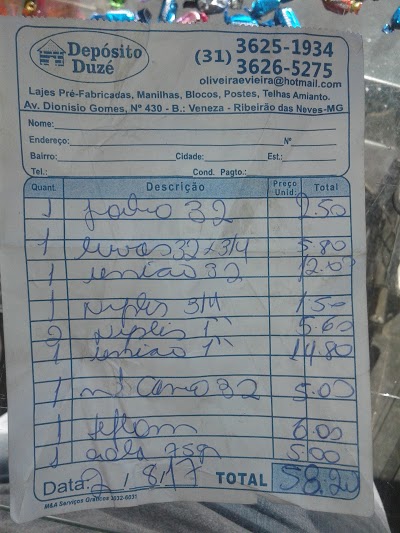 Depósito Duzé
(31) 3625-1934
3626-5275
oliveiraevieira@hotmail.com
Lajes Pré-Fabricadas, Manilhas, Blocos, Postes, Telhas Amianto.
Av. Dionísio Gomes, Nº 430 - B.: Veneza - Ribeirão das Neves-MG
Nome:
Endereço: Nº
Bairro: Cidade: Est.:
Tel.: Cond. Pagto.:
Quant. Descrição Preço Unid: Total
1 32 2.50
1 luvas 32 x 3/4 5.80
1 união 32 12.00
1 niples 3/4 1.50
2 niples 1" 5.60
1 união 1" 14.80
1 cano 32 5.00
1 teflom 6.00
1 cola 75g 5.00
Data: 2, 8, 17 TOTAL 58,20
M&A Serviços Gráficos 3632-6031